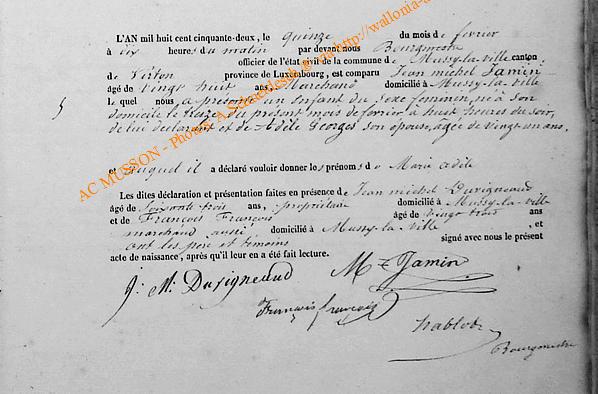 L'AN mil huit cent cinquante-deux, le quinze du mois de février
à dix heures du matin par devant nous Bourgmestre
officier de l'état civil de la commune de Mussy-la-ville canton
de Virton province de Luxembourg, est comparu Jean michel Jamin
âgé de vingt huit ans, Marchand domicilié à Mussy-la-ville
5 Le quel nous, a présenté un Enfant du sexe feminin, né à son
domicile le treize du présent mois de février à huit heures du soir,
de lui déclarant et de Adèle Georges son épouse, agée de vingt un ans,
et auquel il a déclaré vouloir donner les prénoms de Marie adèle
Les dites déclaration et présentation faites en présence de Jean michel Duvigneaud
âgé de soixante trois ans, propriétaire domicilié à Mussy-la-ville
et de François François âgé de vingt trois ans
marchand aussi domicilié à Mussy-la-ville, et
ont les père et témoins signé avec nous le présent
acte de naissance, après qu'il leur en a été fait lecture.
J. M. Duvigneaud M Jamin
François françois
Bourgmestre
AC MUSSON - Photos A. via http://wallonia-a